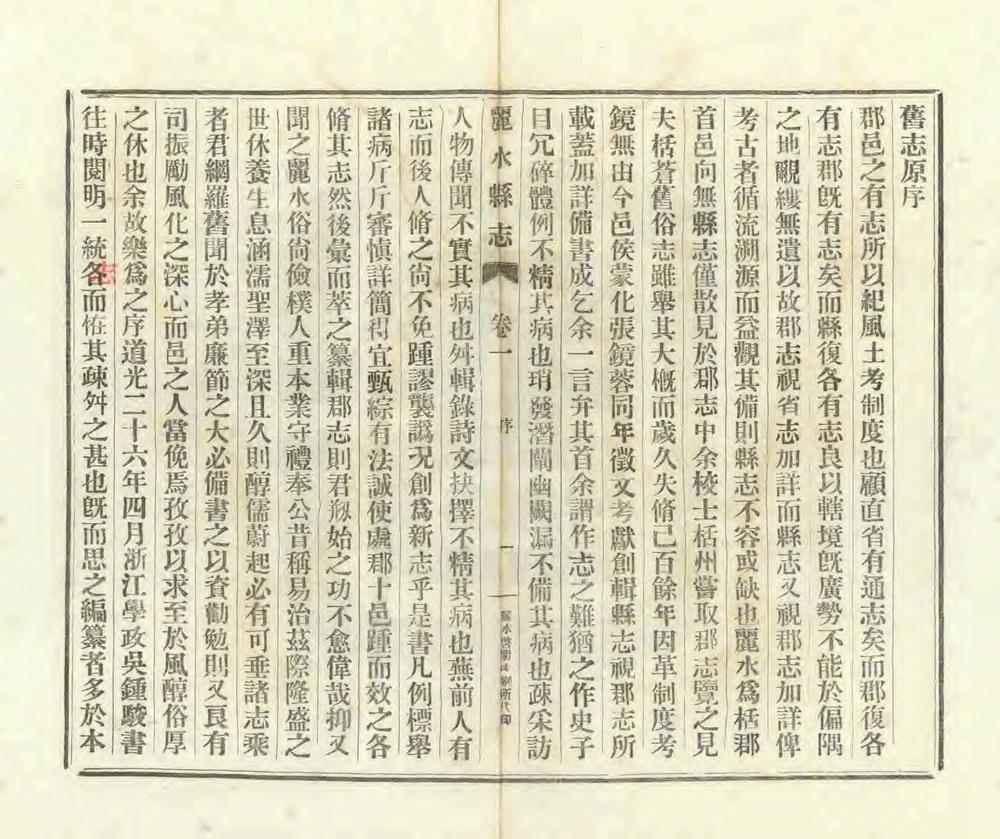 舊志原序
郡邑之有志所以紀風土考制度也顧直省有通志矣而郡復各
有志郡旣有志矣而縣復各有志良以轄境旣廣勢不能於偏隅
之地覼縷無遺以故郡志視省志加詳而縣志又視郡志加詳俾
考古者循流溯源而益觀其備則縣志不容或缺也麗水爲栝郡
首邑向無縣志僅散見於郡志中余校士栝州嘗取郡志覽之見
夫栝蒼舊俗志雖舉其大槪而歲久失脩已百餘年因革制度考
鏡無由今邑侯蒙化張鏡蓉同年徵文考獻創輯縣志視郡志所
載蓋加詳備書成乞余一言弁其首余謂作志之難猶之作史子
目冗碎體例不精其病也琑發潛闡幽闕漏不備其病也疎采訪
麗水縣志 卷一 序 一 麗水啓明印刷所代印
人物傳聞不實其病也舛輯錄詩文抉擇不精其病也蕪前人有
志而後人脩之尙不免踵謬襲譌况創爲新志乎是書凡例標舉
諸病斤斤審愼詳簡得宜甄綜有法誠使處郡十邑踵而效之各
脩其志然後彙而萃之纂輯郡志則君刱始之功不愈偉哉抑又
聞之麗水俗尙儉樸人重本業守禮奉公昔稱易治茲際隆盛之
世休養生息涵濡聖澤至深且久則醇儒蔚起必有可垂諸志乘
者君綱羅舊聞於孝弟廉節之大必備書之以資勸勉則又良有
司振勵風化之深心而邑之人當俛焉孜孜以求至於風醇俗厚
之休也余故樂爲之序道光二十六年四月浙江學政吳鍾駿書
往時閱明一統各而怪其疎舛之甚也旣而思之編纂者多於本
志